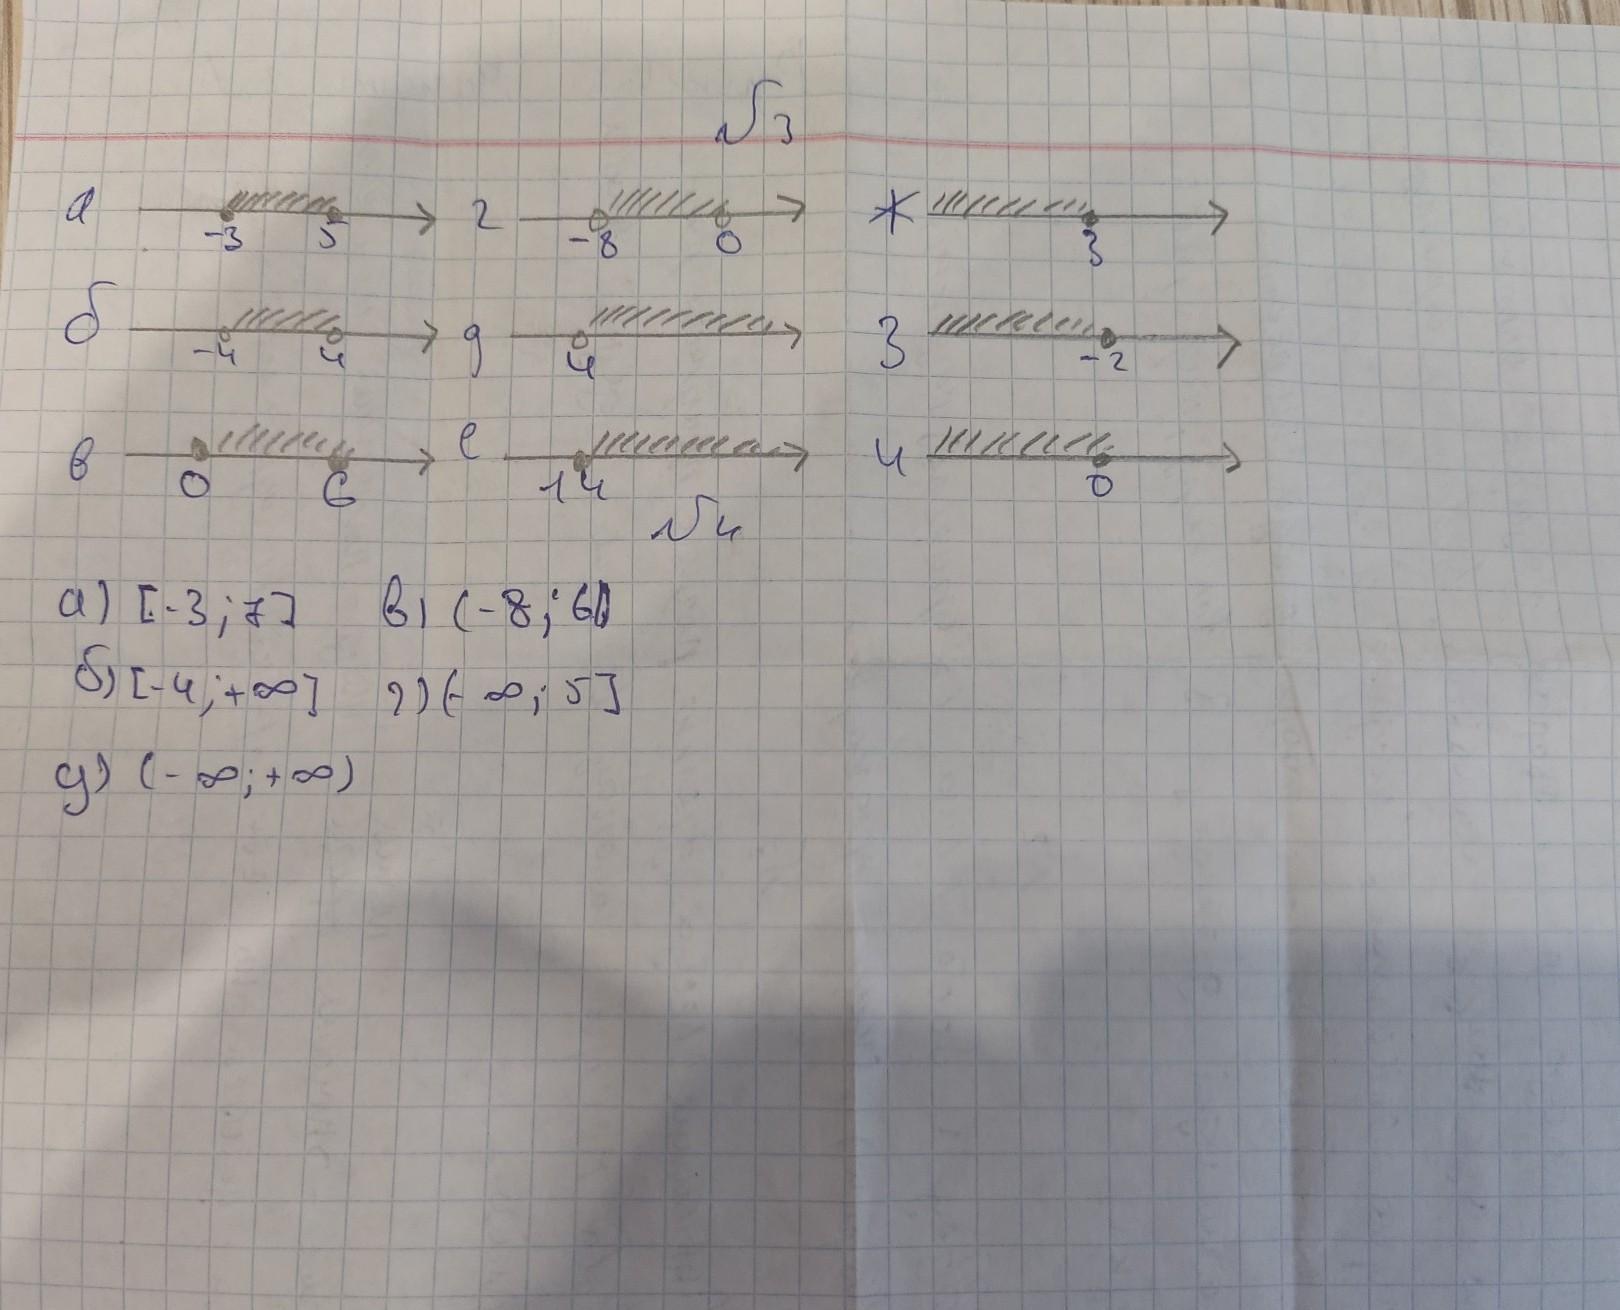 №3
а -3 5 г -8 0 ж 3
б -4 4 д 4 з -2
в 0 6 е 14 и 0
№4
а) [-3; 7] в) (-8; 6)
б) [-4; +∞] г) (-∞; 5]
д) (-∞; +∞)